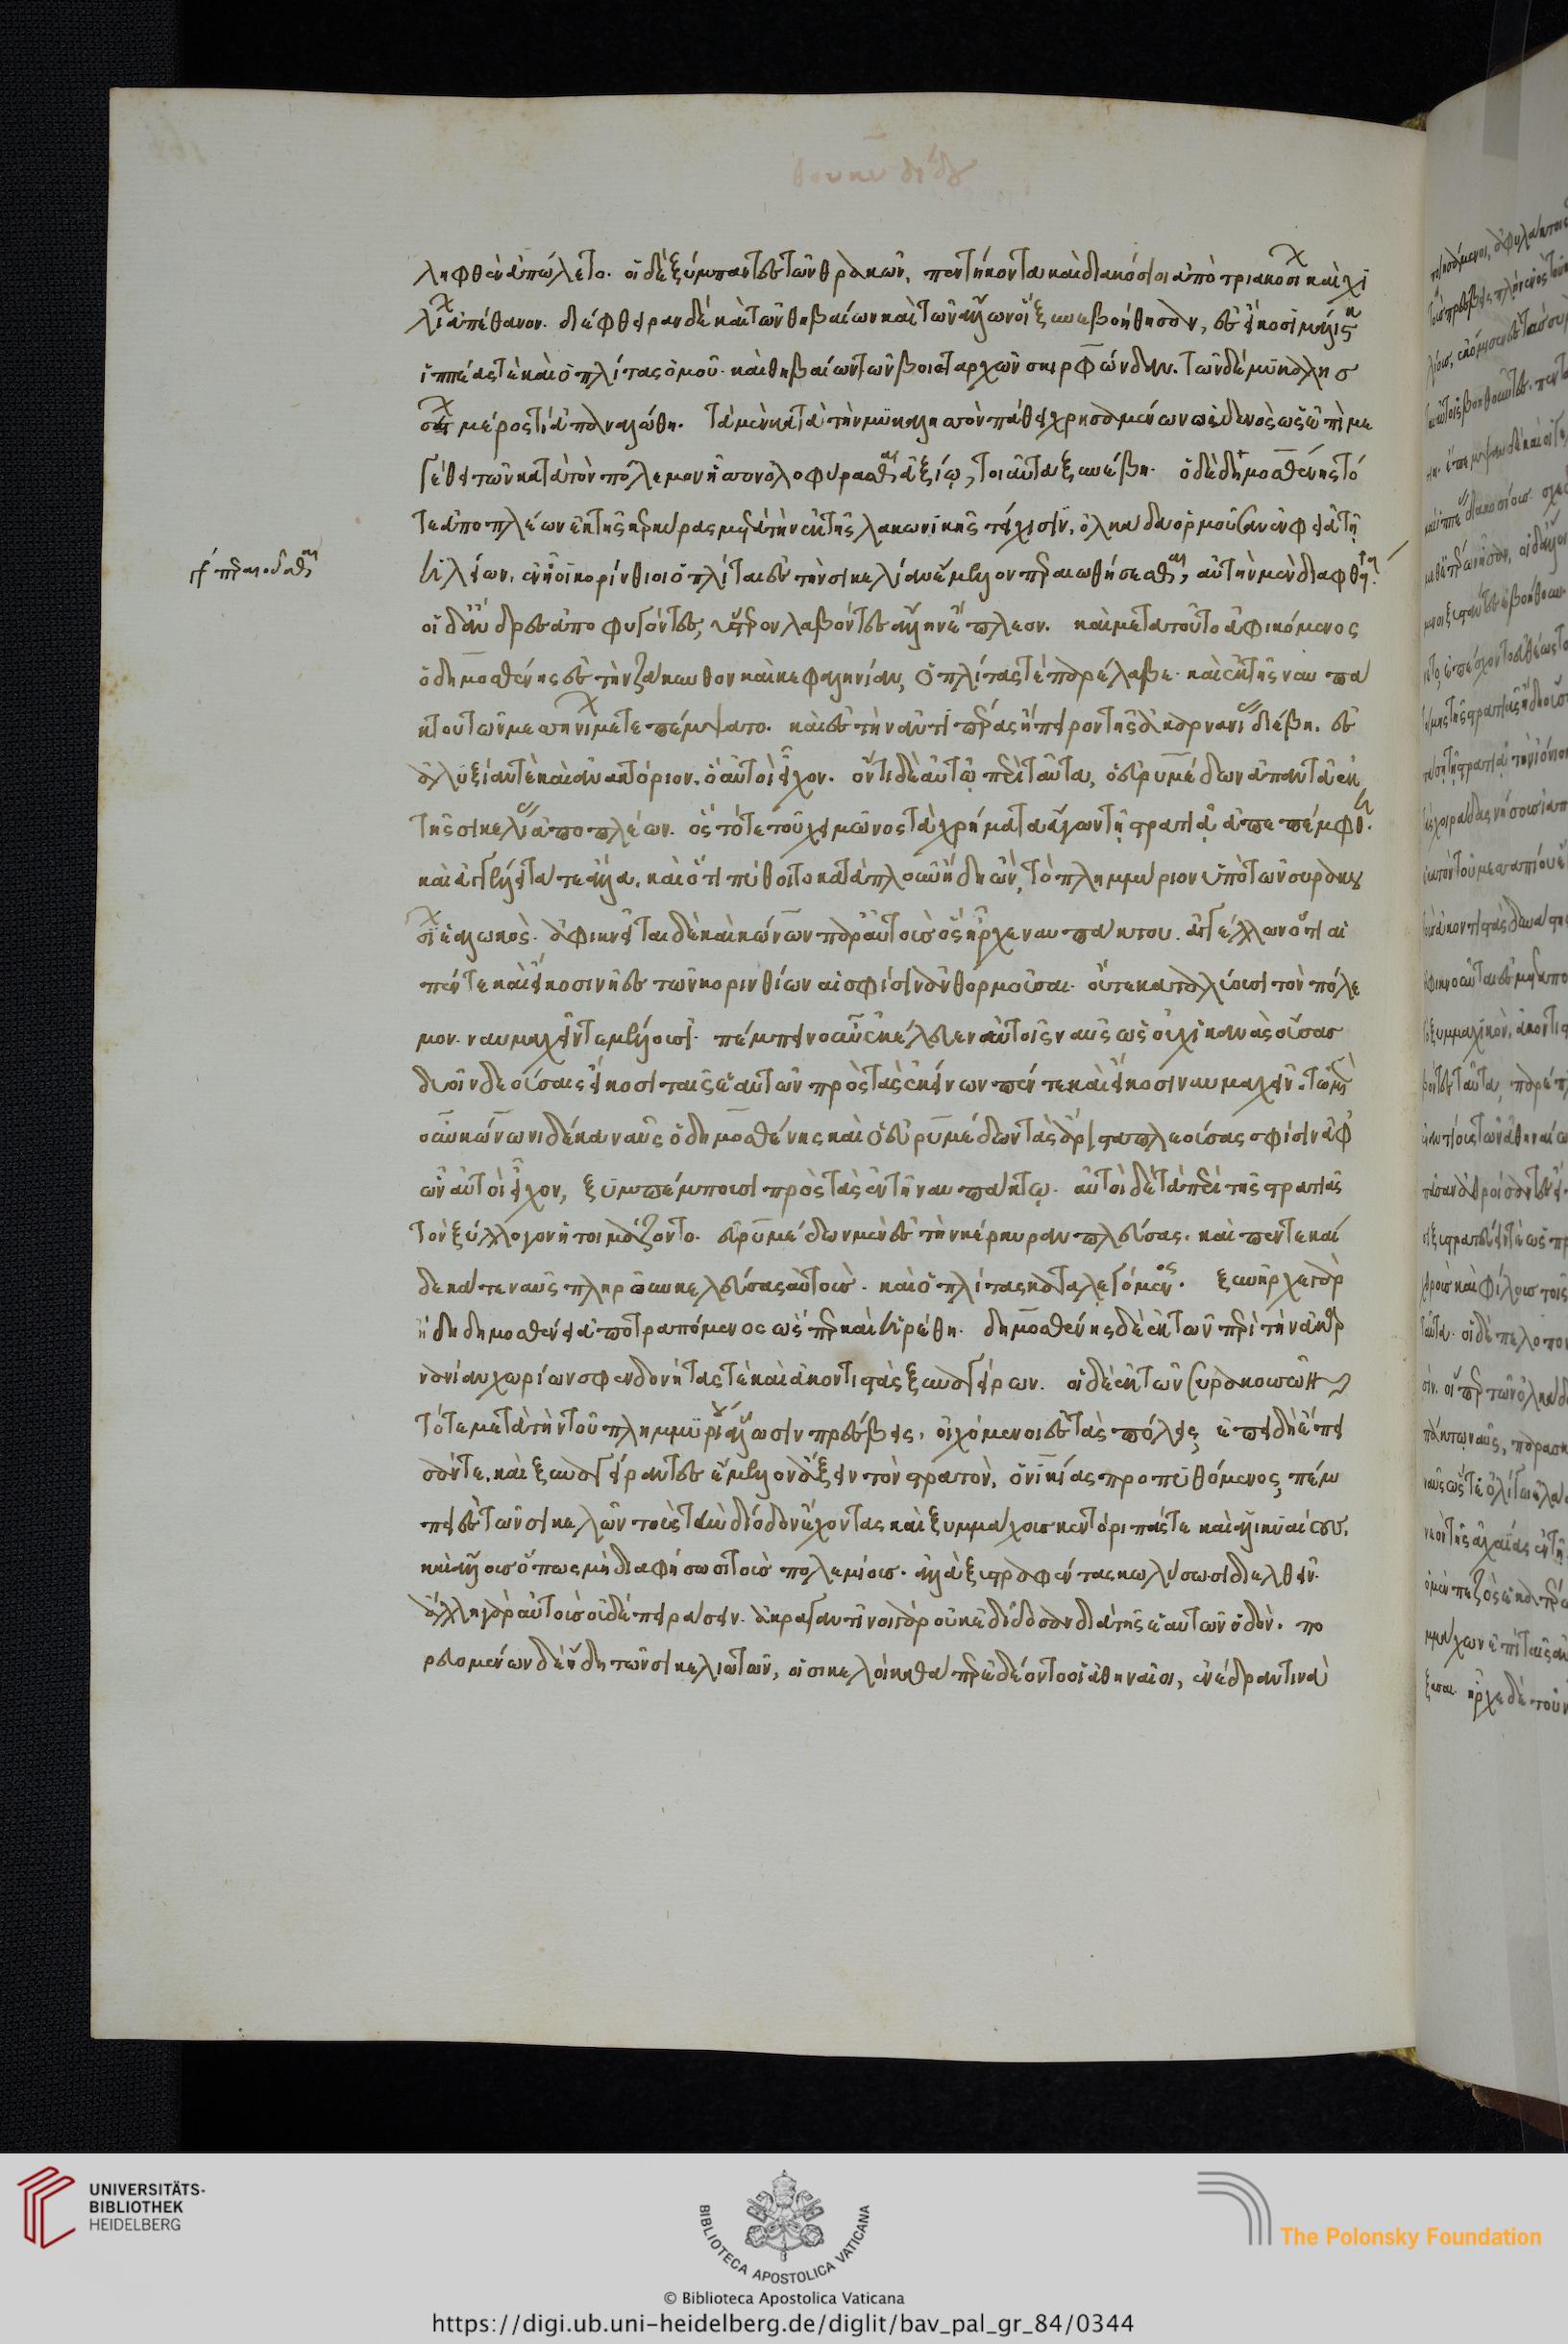 θουκυδίδου
ληφθὲν ἀπώλετο. οἱ δὲ ξύμπαντες τῶν θρακῶν, πεντήκοντα καὶ διακόσιοι ἀπὸ τριακοσίων καὶ χι
λίων ἀπέθανον. διέφθειραν δὲ καὶ τῶν θηβαίων καὶ τῶν ἄλλων οἳ ξυνεβοήθησαν, ἐς εἴκοσι μάλιστα
ἱππέας τὲ καὶ ὁπλίτας ὁμοῦ. καὶ θηβαίων τῶν βοιωταρχῶν σκιρφώνδαν. τῶν δὲ μυκαλησ
σίων μέρος τι ἀπαναλώθη. τὰ μὲν κατὰ τὴν μυκαλησσὸν πάθει χρησαμένων οὐδενὸς ὡς ἐπὶ με
γέθει τῶν κατὰ τὸν πόλεμον ἧσσον ὀλοφύρασθαι ἀξίῳ, τοιαῦτα ξυνέβη. ὁ δὲ δημοσθένης τό
τε ἀποπλέων ἐκ τῆς κερκύρας μετὰ τὴν ἐκ τῆς λακωνικῆς τείχισιν, ὁλκάδα ὁρμοῦσαν ἐν φειᾷ τῇ
ἠλείων, ἐν ᾗ οἱ κορίνθιοι ὁπλῖται ἐς τὴν σικελίαν ἔμελλον περαιωθήσεσθαι, αὐτὴν μὲν διαφθείρει.
γρ περαιοῦσθαι
οἱ δ' ἄνδρες ἀποφυγόντες, ὕστερον λαβόντες ἄλλην ἔπλεον. καὶ μετὰ τοῦτο ἀφικόμενος
ὁ δημοσθένης ἐς τὴν ζάκυνθον καὶ κεφαλληνίαν, ὁπλίτας τὲ παρέλαβε. καὶ ἐκ τῆς ναυπά
κτου τῶν μεσσηνίων μετεπέμψατο. καὶ ἐς τὴν ἀντιπέρας ἤπειρον τῆς ἀκαρνανίας διέβη. ἐς
ἀλυξίαν τὲ καὶ ἀνακτόριον, ὃ αὐτοὶ εἶχον. ὄντι δὲ αὐτῷ περὶ ταῦτα, ὁ εὐρυμέδων ἀπαντᾷ ἐκ
τῆς σικελίας ἀποπλέων. ὃς τότε τοῦ χειμῶνος τὰ χρήματα ἄγων τῇ στρατιᾷ ἀπεπέμφθη.
καὶ ἀγγέλλει τά τε ἄλλα, καὶ ὅτι πύθοιτο κατὰ πλοῦν ἤδη ὤν, τὸ πλημμύριον ὑπὸ τῶν συρακου
σίων ἑαλωκός. ἀφικνεῖται δὲ καὶ κώνων παρ' αὐτοὺς ὃς ἦρχε ναυπάκτου. ἀγγέλλων ὅτι αἱ
πέντε καὶ εἴκοσι νῆες τῶν κορινθίων αἱ σφίσιν ἀνθορμοῦσαι. οὔτε καταλύουσι τὸν πόλε
μον. ναυμαχεῖν τε μέλλουσι. πέμπειν οὖν ἐκέλευεν αὐτοῖς ναῦς ὡς οὐχ ἱκανὰς οὔσας
δυοῖν δεούσαις εἴκοσι ταῖς ἑαυτῶν πρὸς τὰς ἐκείνων πέντε καὶ εἴκοσι ναυμαχεῖν. τῷ μὲν
οὖν κώνωνι δέκα ναῦς ὁ δημοσθένης καὶ ὁ εὐρυμέδων τὰς ἄριστα πλεούσας σφίσιν ἀφ'
ὧν αὐτοὶ εἶχον, ξυμπέμπουσι πρὸς τὰς ἐν τῇ ναυπάκτῳ. αὐτοὶ δὲ τὰ περὶ τῆς στρατιᾶς
τὸν ξύλλογον ἡτοιμάζοντο. εὐρυμέδων μὲν ἐς τὴν κέρκυραν πλεύσας. καὶ πεντεκαί
δεκά τε ναῦς πληροῦν κελεύσας αὐτοὺς. καὶ ὁπλίτας καταλεγόμενος. ξυνῆρχε γὰρ
ἤδη δημοσθένει ἀποτραπόμενος ὥσπερ καὶ ᾑρέθη. δημοσθένης δὲ ἐκ τῶν περὶ τὴν ἀκαρ
νανίαν χωρίων σφενδονήτας τὲ καὶ ἀκοντιστὰς ξυναγείρων. οἱ δὲ ἐκ τῶν συρακουσῶν
τότε μετὰ τὴν τοῦ πλημμυρίου ἅλωσιν πρέσβεις, οἰχόμενοι ἐς τὰς πόλεις, ἐπειδὴ ἔπει
σάν τε. καὶ ξυναγείραντες ἔμελλον ἄξειν τὸν στρατόν, ὁ νικίας προπυθόμενος, πέμ
πει ἐς τῶν σικελῶν τοὺς τὴν δίοδον ἔχοντας καὶ ξυμμάχους κεντόριπάς τε καὶ ἁλικυαίους.
καὶ ἄλλους ὅπως μὴ διαφήσωσι τοὺς πολεμίους. ἀλλὰ ξυστραφέντας κωλύσωσι διελθεῖν.
ἄλλῃ γὰρ αὐτοὺς οὐδὲ πειράσειν. ἀκραγαντῖνοι γὰρ οὐκ ἐδίδοσαν διὰ τῆς ἑαυτῶν ὁδόν. πο
ρευομένων δὲ ἤδη τῶν σικελιωτῶν, οἱ σικελοὶ καθάπερ ἐδέοντο οἱ ἀθηναῖοι, ἐνέδραν τινὰ
UNIVERSITÄTS-
BIBLIOTHEK
HEIDELBERG
BIBLIOTECA APOSTOLICA VATICANA
The Polonsky Foundation
© Biblioteca Apostolica Vaticana
https://digi.ub.uni-heidelberg.de/diglit/bav_pal_gr_84/0344